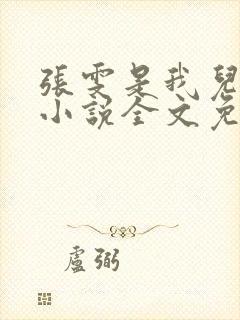 張雯是我兒
小說全文免
盧弼